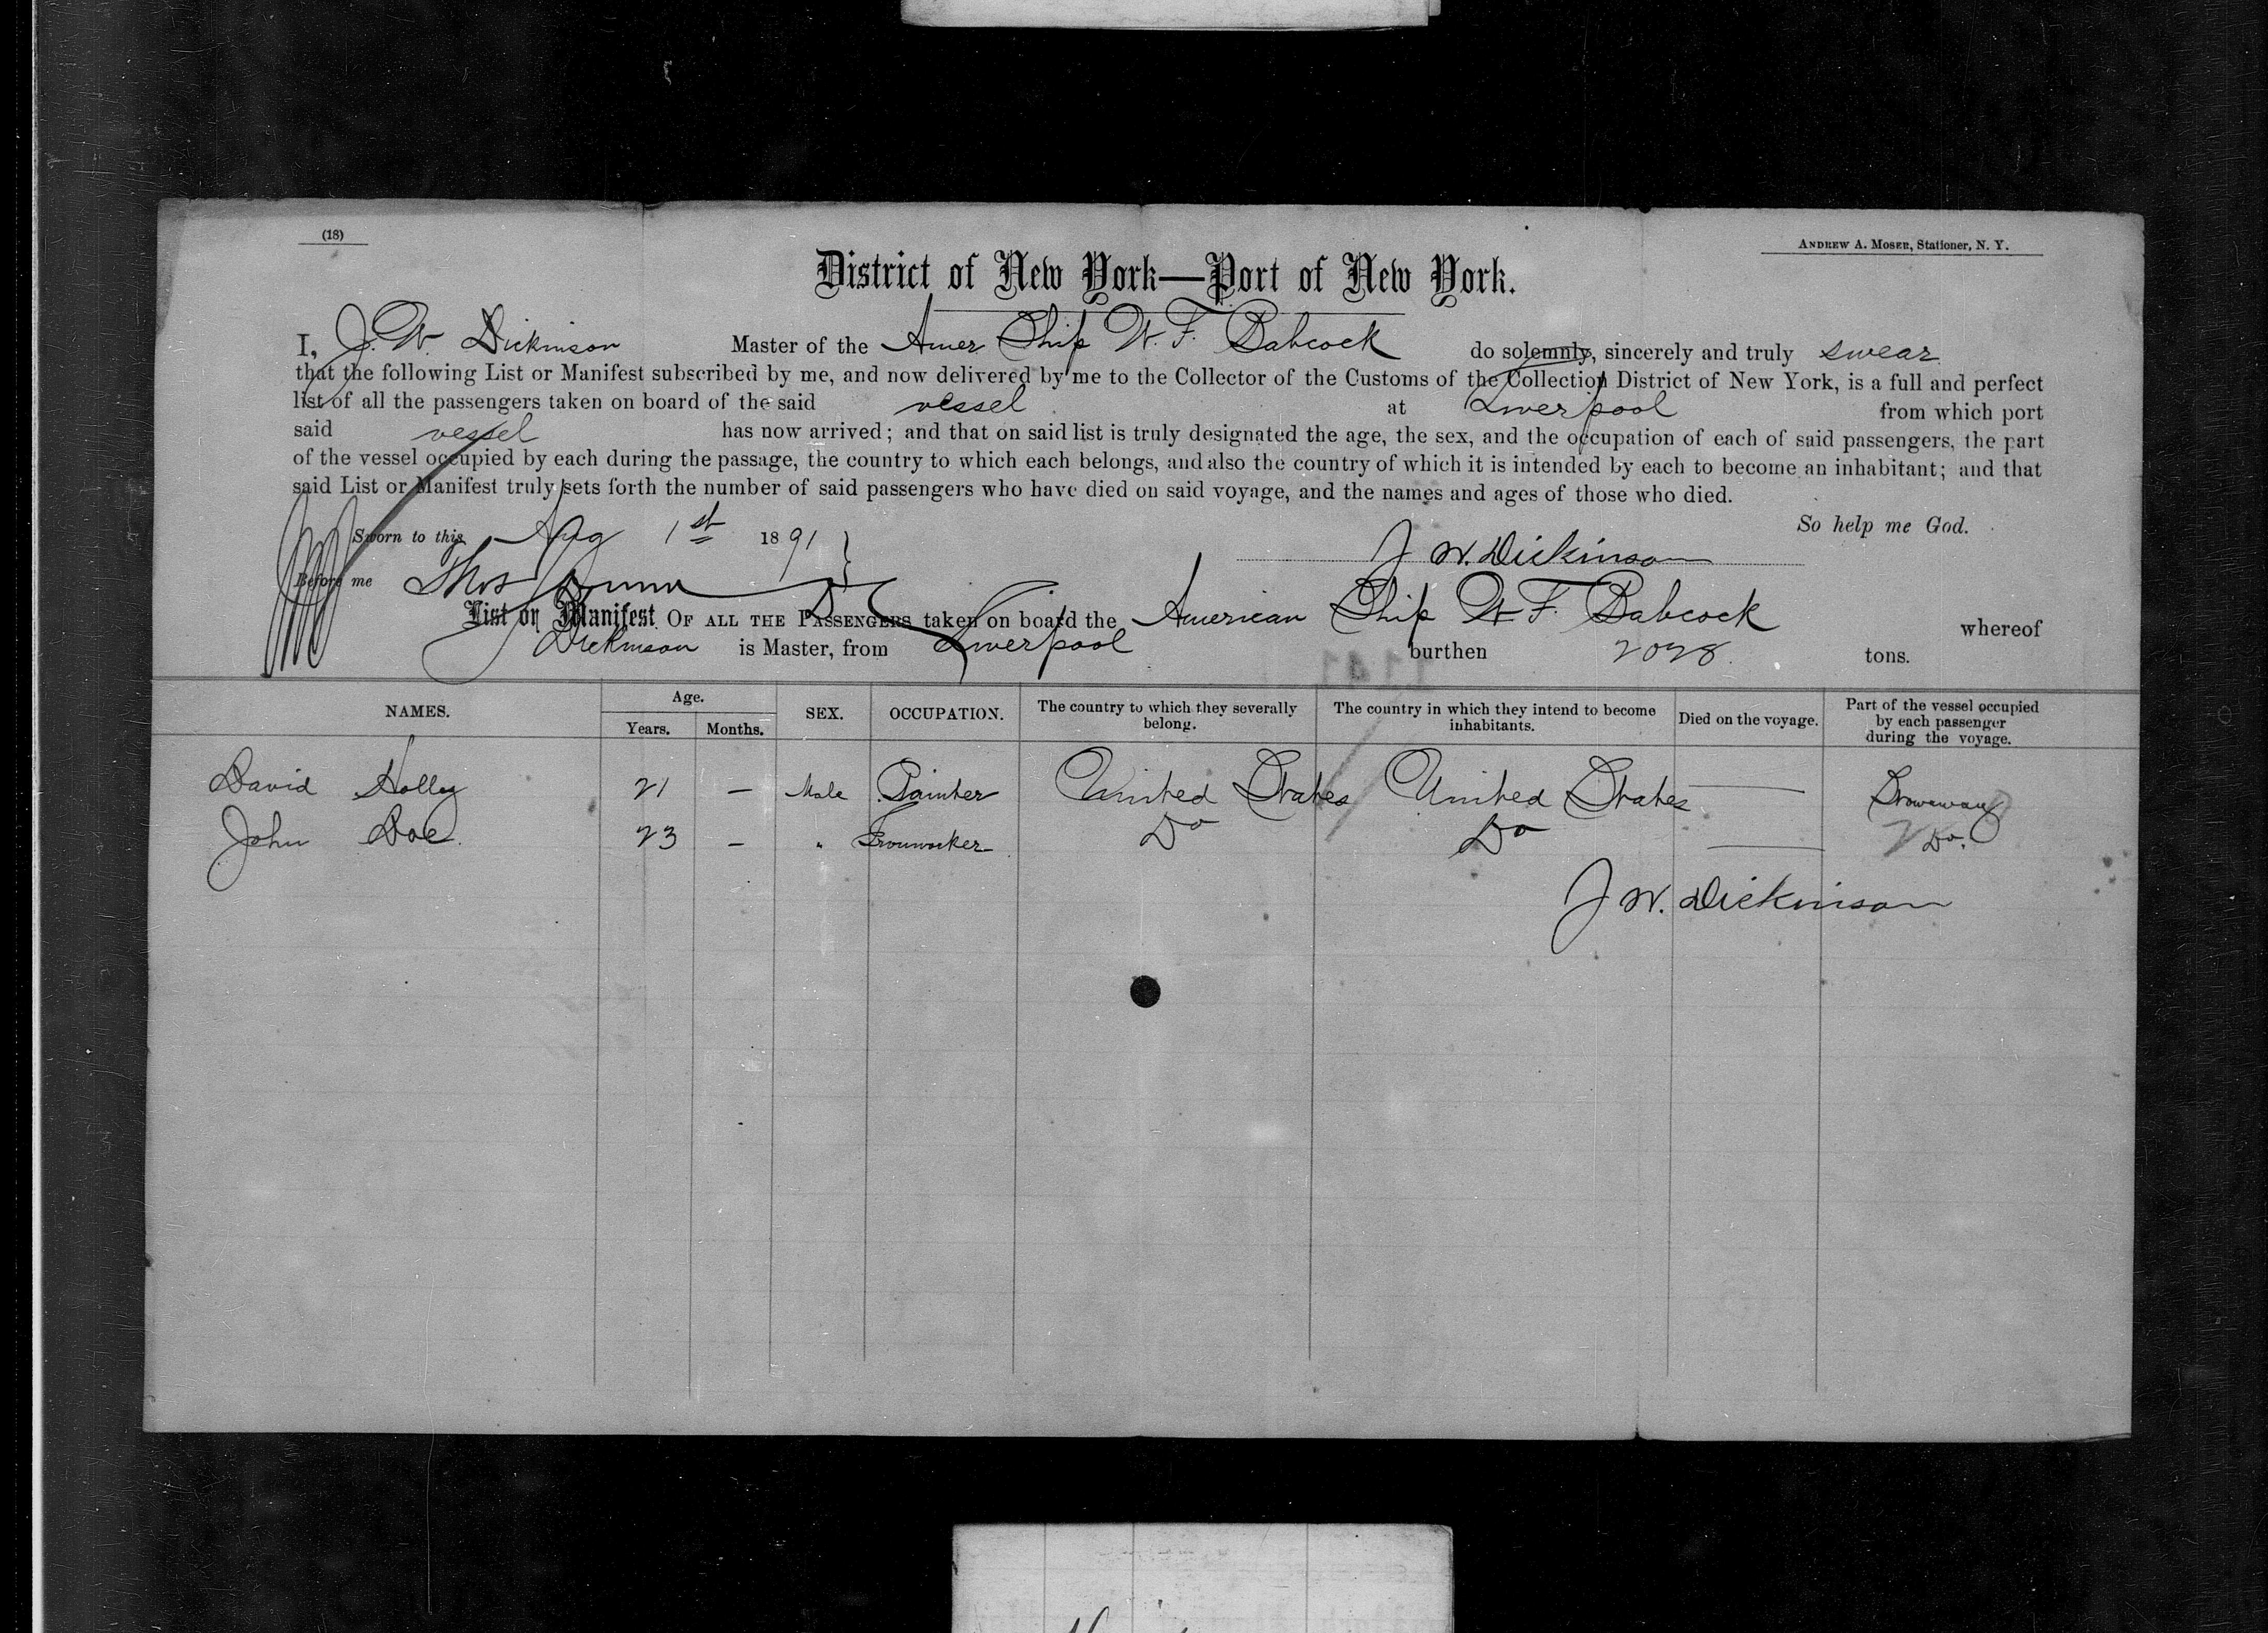 (18)
ANDREW A. MOSER, Stationer, N. Y.
District of New York—Port of New York.
I, J. W. Dickinson Master of the Amer Ship W. F. Babcock do solemnly, sincerely and truly swear
that the following List or Manifest subscribed by me, and now delivered by me to the Collector of the Customs of the Collection District of New York, is a full and perfect
list of all the passengers taken on board of the said vessel at Liverpool from which port
said vessel has now arrived; and that on said list is truly designated the age, the sex, and the occupation of each of said passengers, the part
of the vessel occupied by each during the passage, the country to which each belongs, and also the country of which it is intended by each to become an inhabitant; and that
said List or Manifest truly sets forth the number of said passengers who have died on said voyage, and the names and ages of those who died.
So help me God.
Sworn to this Aug 1st 1891
J W. Dickinson
Before me Thos Dunn
List or Manifest OF ALL THE PASSENGERS taken on board the American Ship W F. Babcock whereof
J Dickinson is Master, from Liverpool burthen 2028 tons.
NAMES. Age. Years. Months. SEX. OCCUPATION. The country to which they severally belong. The country in which they intend to become inhabitants. Died on the voyage. Part of the vessel occupied by each passenger during the voyage.
David Holley 21 — Male Painter United States United States — Stowaway
John Doe 23 — " Ironworker Do Do — Do.
J W. Dickinson